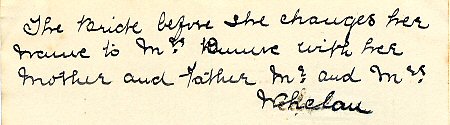 The Bride before she changes her
name to Mrs with her
Mother and Father Mr and Mrs
Whelan